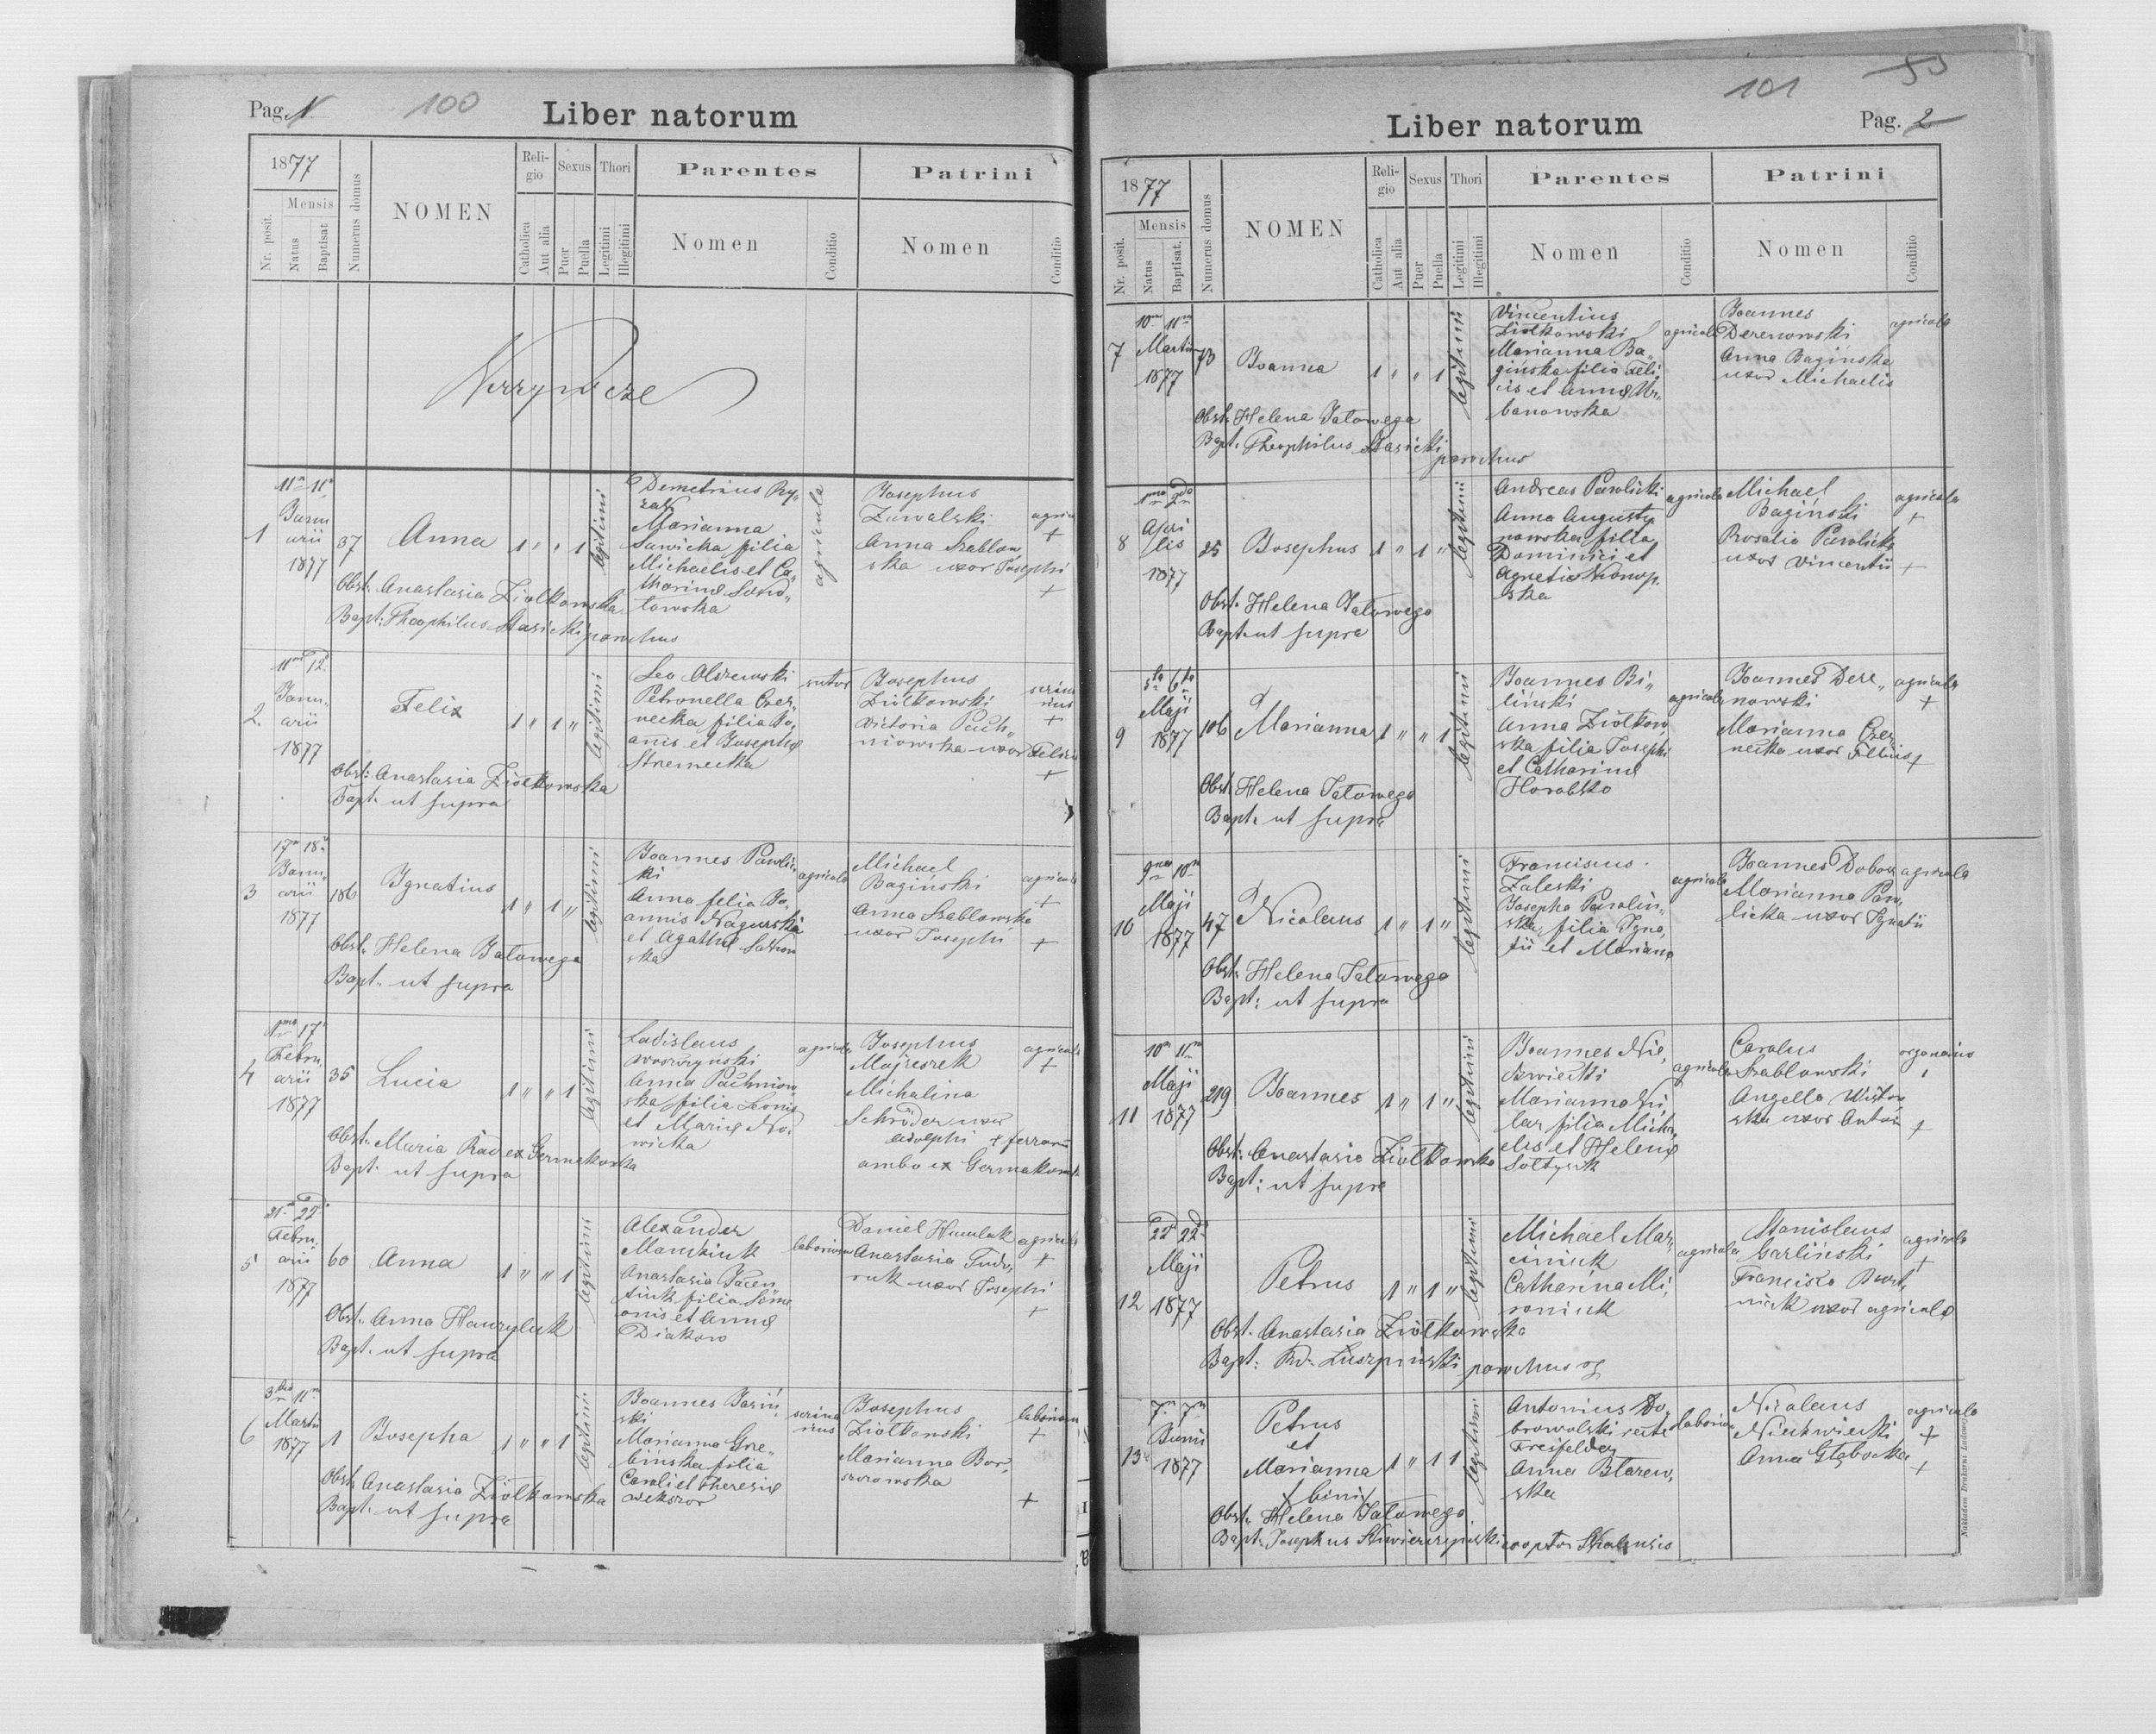 Pag. 1.
100
Liber natorum
1877
Mensis
Nr. posit.
Natus
Baptisat
Numerus domus
NOMEN
Religio
Catholica
Aut alia
Sexus
Puer
Puella
Thori
Legitimi
Illegitimi
Parentes
Nomen
Conditio
Patrini
Nomen
Conditio
1
11 11
Januarii
1877
37
Anna
1 " " 1
legitimi
Demetrius Ry„
zak
Marianna
Sawicka filia
Michaelis et Ca„
tharinæ
agricola
Josephus
Zuwalski
Anna Szablow
ska uxor Josephi
+
+
Obst: Anastasia Ziolkowska
Bapt: Theophilus Stasicki parochus
2.
11 12
Janu„
arii
1877
Felix
1 " 1 "
legitimi
Leo Olszewski
Petronella Czer„
necka filia Jo„
annis et Josephæ
Strzemecka
sutor
Josephus
Ziółkowski
Victoria Pach„
niowska uxor Felicis
+
+
Obst: Anastasia Ziółkowska
Bapt. ut supra
3
17 18
Janu„
arii
1877
186
Ignatius
1 " 1 "
legitimi
Joannes Pawlic
ki
Anna filia Jo„
annis Nagurski
et Agathæ
agricola
Michael
Bagiński
Anna Szablowska
uxor Josephi
agricola
+
+
Obst. Helena Jatowega
Bapt. ut supra
4
1 17
Febru„
arii
1877
35
Lucia
1 " " 1
legitimi
Ladislaus
Anna Pachniow
ska filia Leonis
et Mariæ No„
wicka
agricola
Josephus
Majcszek
Michalina
Schröder uxor
Adolphi +
ambo ex Germakowka
agricola
+
Obst. Maria Rad ex Germakowka
Bapt. ut supra
5
21 22
Febru.
arii
1877
60
Anna
1 " " 1
legitimi
Alexander
Mamziuk
Anastasia
filia Sime
onis et Annæ
Diakow
Daniel Humluk
Anastasia Fedo„
ruk uxor Josephi
agricola
+
+
Obst. Anna Hauryluk
Bapt. ut supra
6
3 11
Martii
1877
1
Josepha
1 " " 1
legitimi
Joannes Jasiń
ski
Marianna Grze„
bińska filia
Caroli et Theresiæ
Josephus
Ziółkowski
Marianna Bor„
szczowska
+
+
Obst. Anastasia Ziółkowska
Bapt. ut supra
101
Liber natorum
Pag. 2
1877
Mensis
Nr. posit.
Natus
Baptisat.
Numerus domus
NOMEN
Religio
Catholica
Aut alia
Sexus
Puer
Puella
Thori
Legitimi
Illegitimi
Parentes
Nomen
Conditio
Patrini
Nomen
Conditio
7
10 11
Martii
1877
73
Joanna
1 " " 1
legitimi
Vincentius
Ziółkowski
Marianna Ba„
gińska filia Feli
cis et Annæ Ur„
banowska
agricola
Joannes
Derenowski
Anna Bagińska
uxor Michaelis
agricola
Obst. Helena Jatowega
Bapt. Theophilus Stasicki parochus
8
1 2
Apri
lis
1877
25
Josephus
1 " 1 "
legitimi
Andreas Pawlicki
Anna Augusty
nowska filia
Dominici et
Agnetis Konop.
ska
agricola
Michael
Bagiński
Rosalia Pawlicka
uxor Vincentii
agricola
+
+
Obst. Helena Jatowega
Bapt. ut supra
9
5 6
Maji
1877
106
Marianna
1 " " 1
legitimi
Joannes Bi„
liński
Anna Ziółkow
ska filia Josephi
et Catharinæ
Horobko
agricola
Joannes Dere„
nowski
Marianna Czer
necka uxor
agricola
+
+
Obst. Helena Jatowega
Bapt. ut supra
10
9 10
Maji
1877
47
Nicolaus
1 " 1 "
legitimi
Franciscus
Zaleski
Josepha Pawlin„
ska, filia Igna„
tii et Mariana
agricola
Joannes Dobosz
Marianna Paw„
licka uxor Ignatii
agricola
Obst. Helena Jatowega
Bapt: ut supra
11
10 11
Maji
1877
219
Joannes
1 " 1 "
legitimi
Joannes Nie„
dzwiecki
Marianna
filia Micha„
elis et Helenæ
Sołtysik
agricola
Carolus
Szablowski
Angella
ska uxor Antonii
+
Obst: Anastasia Ziółkowska
Bapt: ut supra
12
22 22
Maji
1877
Petrus
1 " 1 "
legitimi
Michael Mar„
ciniuk
Catharina Mi„
roniuk
agricola
Stanislaus
Garliński
Francisca
uxor agricola
agricola
+
Obst. Anastasia Ziółkowska
Bapt: Rd. Luszpiński parochus
13
7 7
Junii
1877
Petrus
et
Marianna
bini
1 " 1 1
legitimi
Antonius Do„
browolski recte
Freifelder
Anna
Nicolaus
Niedzwiecki
Anna Głębocka
agricola
+
+
Obst. Helena Jatowega
Bapt: Josephus Skwierczyński cooptor Skalensis